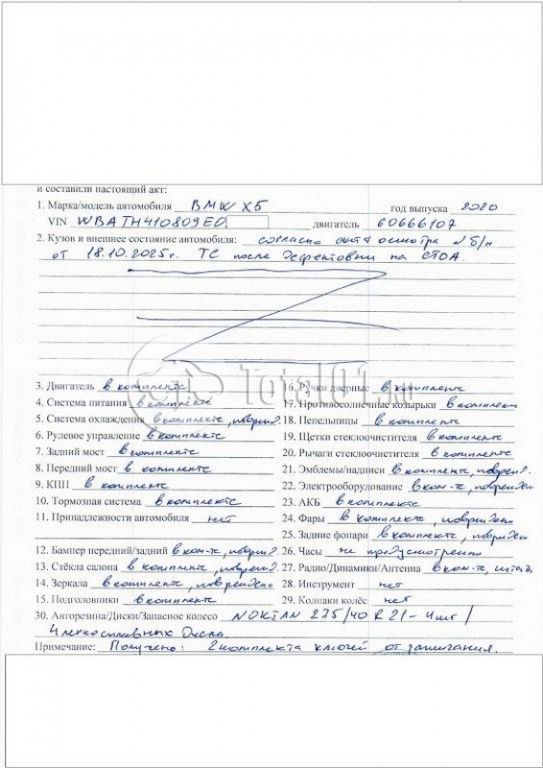 и составили настоящий акт:
1. Марка/модель автомобиля BMW X5 год выпуска 2020
VIN WBATH410809E0 двигатель 60666107
2. Кузов и внешнее состояние автомобиля: согласно акта осмотра № б/н
от 18.10.2025г. ТС после дефектовки на СТОА.
Total01.ru
3. Двигатель в комплекте 16. Ручки дверные в комплекте
4. Система питания в комплекте 17. Противосолнечные козырьки в комплен
5. Система охлаждения в комплекте, поврежд. 18. Пепельницы в комплекте
6. Рулевое управление в комплекте 19. Щетки стеклоочистителя в комплекте
7. Задний мост в комплекте 20. Рычаги стеклоочистителя в комплекте
8. Передний мост в комплекте 21. Эмблемы/надписи в комплекте, поврежд.
9. КПП в комплекте 22. Электрооборудование в ком-те, поврежден
10. Тормозная система в комплекте 23. АКБ в комплекте
11. Принадлежности автомобиля нет 24. Фары в комплекте, поврежден
25. Задние фонари в комплекте, поврежден
12. Бампер передний/задний в ком-те, поврежд. 26. Часы не предусмотрено
13. Стёкла салона в комплекте, поврежд. 27. Радио/Динамики/Антенна в ком-те, штатн
14. Зеркала в комплекте, поврежден 28. Инструмент нет
15. Подголовники в комплекте 29. Колпаки колёс нет
30. Авторезина/Диски/Запасное колесо NOKIAN 275/40 R21 - 4шт /
4 легкосплавных диска
Примечание: Получено: 2 комплекта ключей от зажигания.